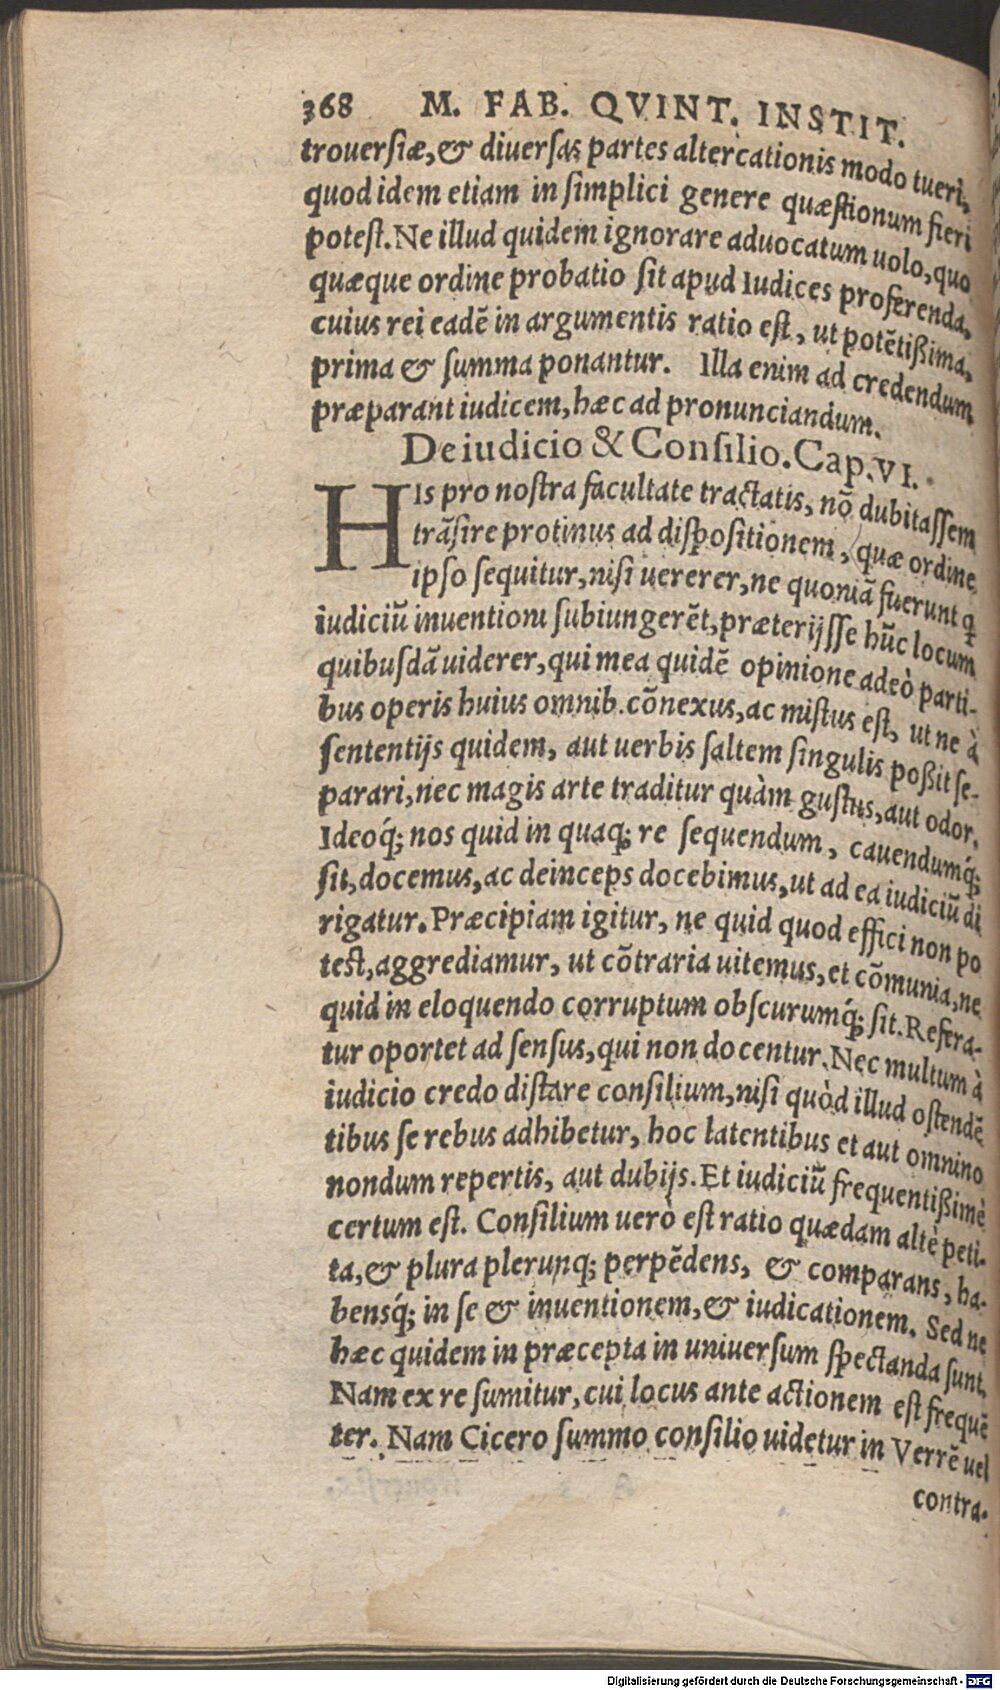 368 M. FAB. QVINT. INSTIT.
trouersiæ, & diuersas partes altercationis modo tueri,
quod idem etiam in simplici genere quæstionum fieri
potest. Ne illud quidem ignorare aduocatum uolo, quo
quæque ordine probatio sit apud Iudices proferenda,
cuius rei eadē in argumentis ratio est, ut potētißima,
prima & summa ponantur. Illa enim ad credendum
præparant iudicem, hæc ad pronunciandum.
De iudicio & Consilio. Cap. VI.
HIs pro nostra facultate tractatis, nō dubitassem
trāsire protinus ad dispositionem, quæ ordine
ipso sequitur, nisi uererer, ne quoniā fuerunt q̄
iudiciū inuentioni subiungerēt, præterijsse hūc locum
quibusdā uiderer, qui mea quidē opinione adeò parti-
bus operis huius omnib. cōnexus, ac mistus est, ut ne à
sententijs quidem, aut uerbis saltem singulis poßit se-
parari, nec magis arte traditur quàm gustus, aut odor.
Ideoq́; nos quid in quaq; re sequendum, cauendumq́;
sit, docemus, ac deinceps docebimus, ut ad ea iudiciū di
rigatur. Præcipiam igitur, ne quid quod effici non po
test, aggrediamur, ut cōtraria uitemus, et cōmunia, ne
quid in eloquendo corruptum obscurumq́; sit. Refera-
tur oportet ad sensus, qui non docentur. Nec multum à
iudicio credo distare consilium, nisi quòd illud ostendē
tibus se rebus adhibetur, hoc latentibus et aut omnino
nondum repertis, aut dubijs. Et iudiciū frequentißimè
certum est. Consilium uero est ratio quædam altè peti-
ta, & plura plerunq; perpēdens, & comparans, ha-
bensq́; in se & inuentionem, & iudicationem. Sed ne
hæc quidem in præcepta in uniuersum spectanda sunt.
Nam ex re sumitur, cui locus ante actionem est frequē
ter. Nam Cicero summo consilio uidetur in Verrē uel
contra-
Digitalisierung gefördert durch die Deutsche Forschungsgemeinschaft - DFG